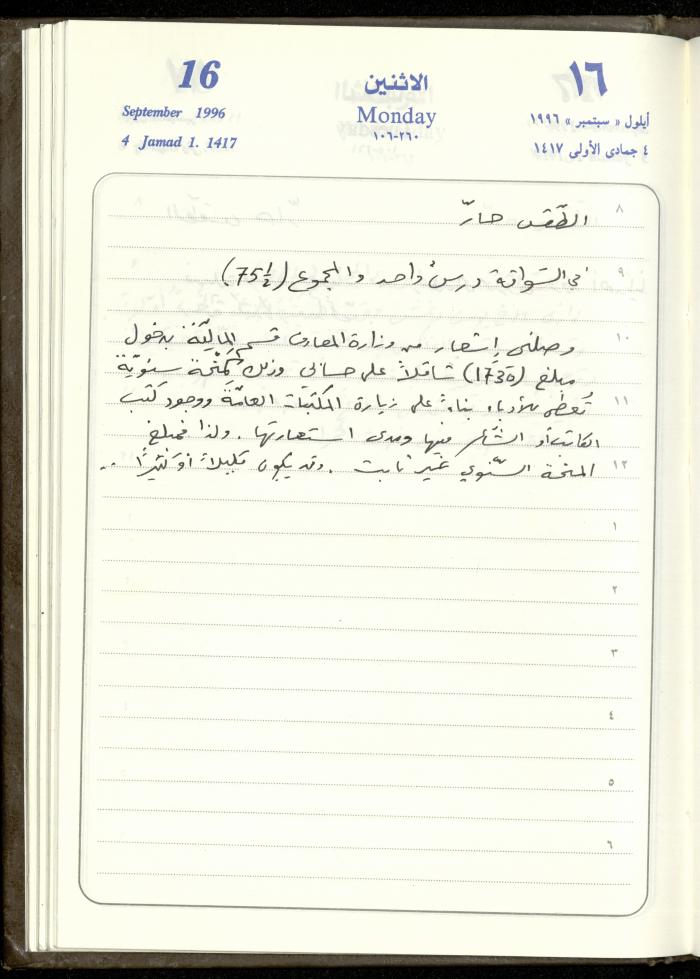 16
September 1996
4 Jamad 1. 1417
الاثنين
Monday
١٠٦-٢٦٠
١٦
أيلول « سبتمبر » ١٩٩٦
٤ جمادى الأولى ١٤١٧
٨ الطّقس حارّ
٩ في السّواقة درسٌ واحد والمجموع (75½)
١٠ وصلني إشعار من وزارة المعارف قسم الماليّة بدخول
مبلغ (1735) شاقلاً على حسابي وذلك كمِنْحة سنويّة
١١ تُعطى للأدباء بناءً على زيارة المكتبات العامّة ووجود كتب
الكاتب أو الشّاعر فيها ومدى استعارتها . ولذا فمبلغ
١٢ المنحة السّنوي غير ثابت . وقد يكون قليلاً أو كثيرًا ..
١
٢
٣
٤
٥
٦